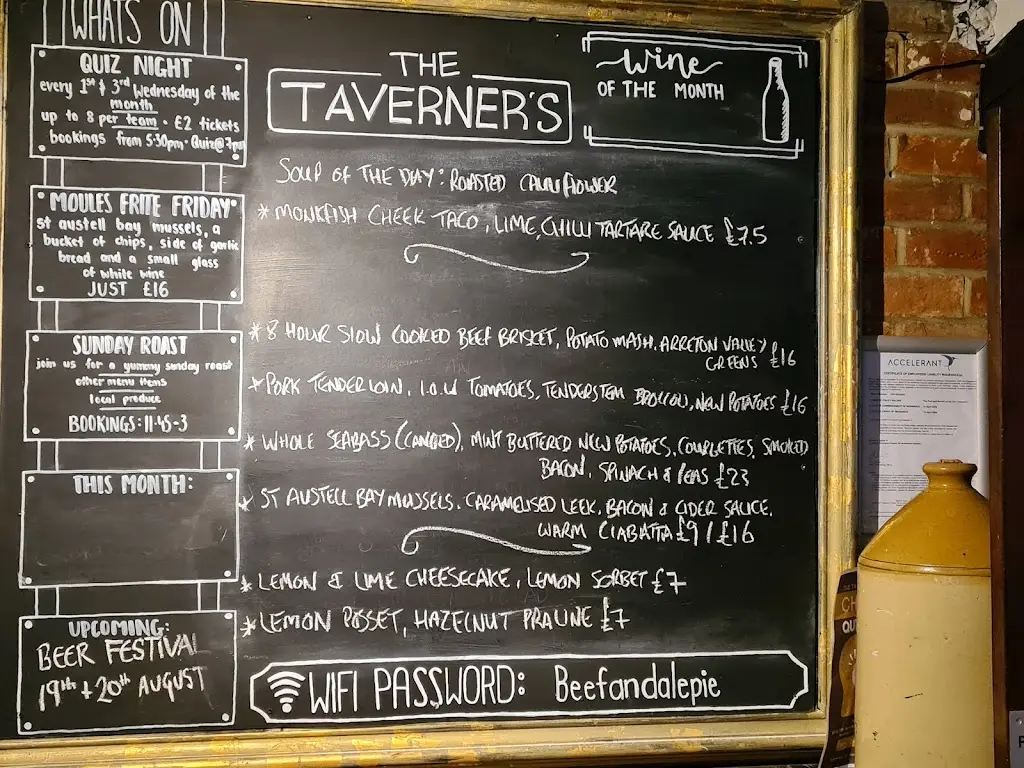 WHATS ON
QUIZ NIGHT
every 1st + 3rd Wednesday of the
month
up to 8 per team · £2 tickets
bookings from 5:30pm · Quiz@7pm
MOULES FRITE FRIDAY
st austell bay mussels, a
bucket of chips, side of garlic
bread and a small glass
of white wine
JUST £16
SUNDAY ROAST
join us for a yummy sunday roast
other menu items
local produce
BOOKINGS: 11·45-3
THIS MONTH:
UPCOMING:
BEER FESTIVAL
19th + 20th AUGUST
THE
TAVERNER'S
wine
OF THE MONTH
SOUP OF THE DAY: ROASTED CAULIFLOWER
* MONKFISH CHEEK TACO, LIME, CHILLI TARTARE SAUCE £7.5
* 8 HOUR SLOW COOKED BEEF BRISKET, POTATO MASH, ARRETON VALLEY
GREENS £16
* PORK TENDERLOIN, I.O.W TOMATOES, TENDERSTEM BROCCOLI, NEW POTATOES £16
* WHOLE SEABASS (), MINT BUTTERED NEW POTATOES, COURGETTES, SMOKED
BACON, SPINACH & PEAS £23
* ST AUSTELL BAY MUSSELS, CARAMELISED LEEK, BACON & CIDER SAUCE,
WARM CIABATTA £9 / £16
* LEMON & LIME CHEESECAKE, LEMON SORBET £7
* LEMON POSSET, HAZELNUT PRALINE £7
WIFI PASSWORD: Beefandalepie
ACCELERANT